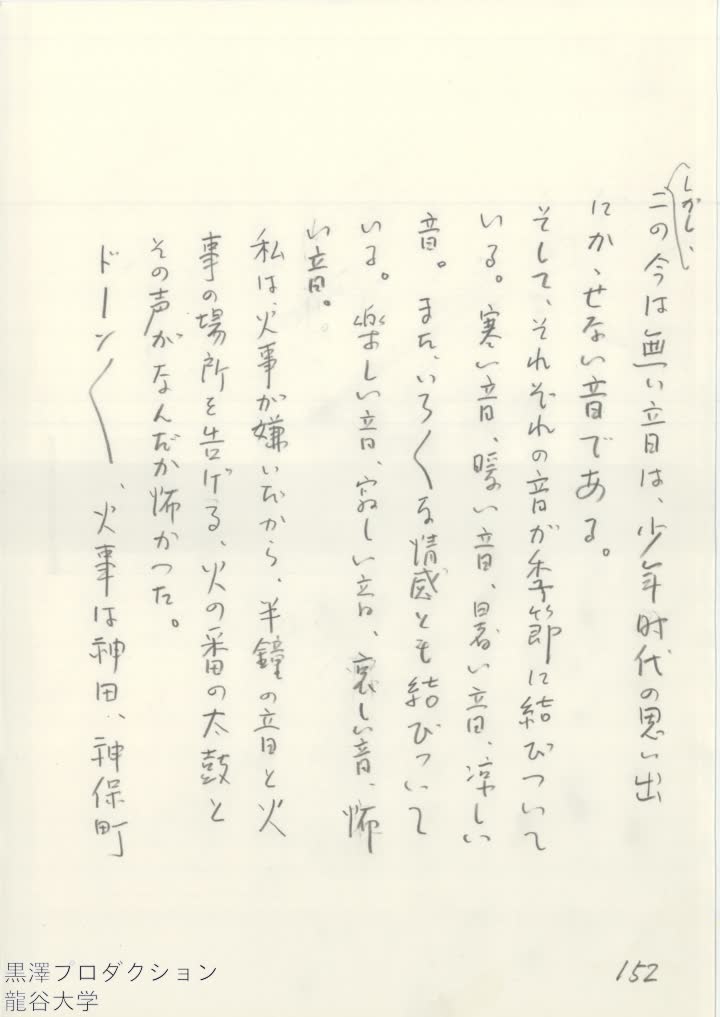 しかし、
この今は無い音は、少年時代の思い出
にかゝせない音である。
そして、それぞれの音が季節に結びついて
いる。寒い音、暖い音、暑い音、涼しい
音。また、いろ〱な情感とも結びついて
いる。楽しい音、寂しい音、哀しい音、怖
い音。
私は、火事が嫌いだから、半鐘の音と火
事の場所を告げる、火の番の太鼓と
その声がなんだか怖かつた。
ドーン〱、火事は神田、神保町
152
黒澤プロダクション
龍谷大学